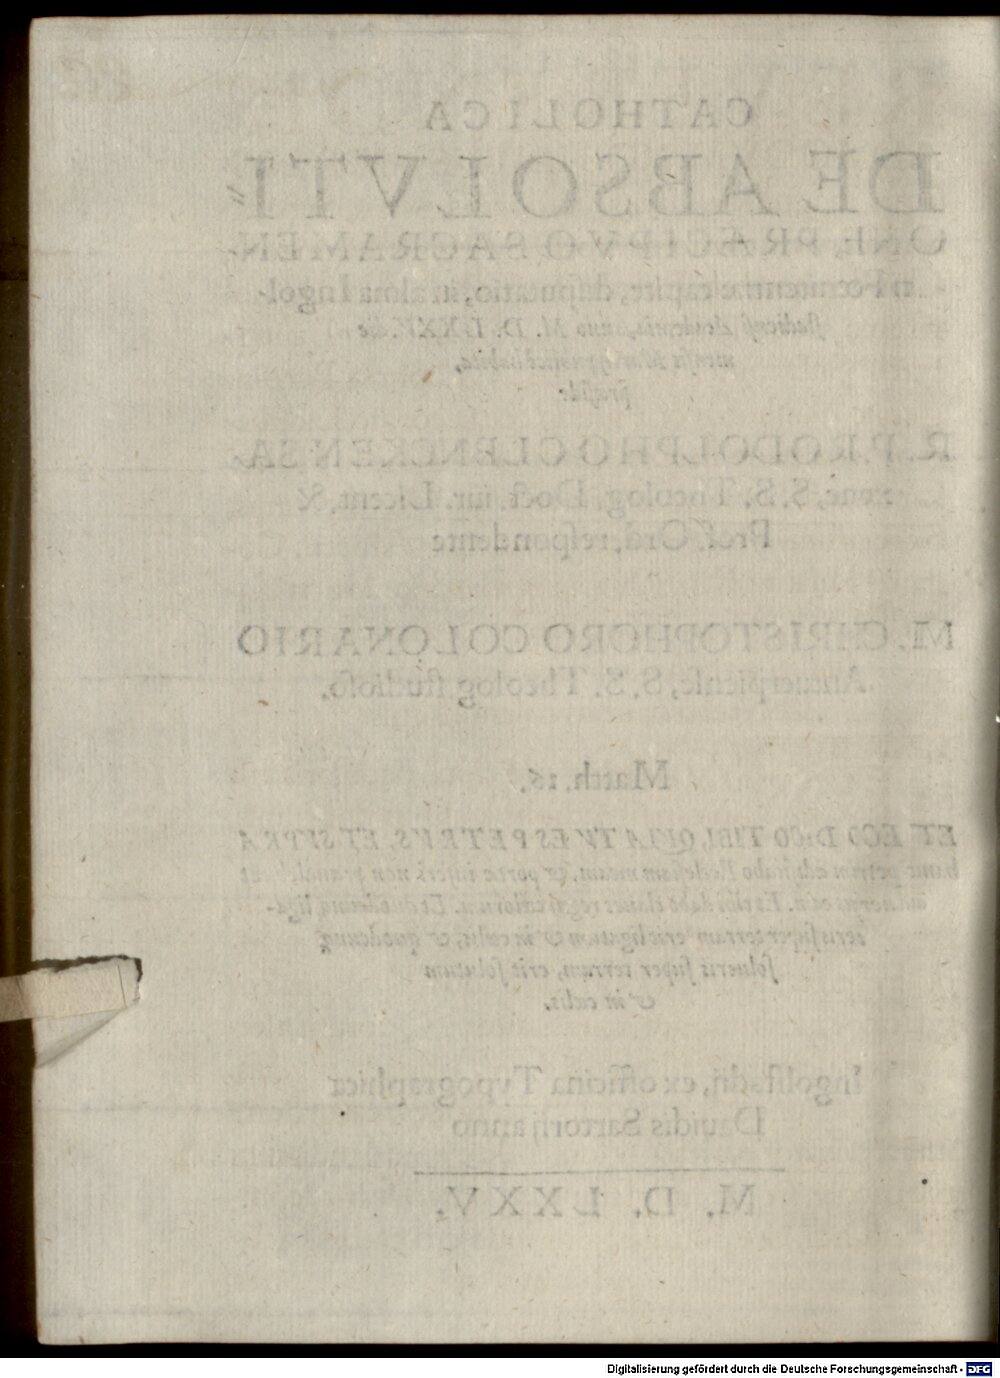 CATHOLICA
DE ABSOLVTI⸗
ONE, PRÆCIPVO SACRAMEN-
Pœnitentiæ capite, disputatio, in alma Ingol-
stadiensi Academia, anno M. D. LXXV. die
mensis habita,
præside
R. P. RODOLPHO CLENCKEN SA-
xone, S. S. Theolog. Doct. iur. Licent. &
Prof. Ord. respondente
M. CHRISTOPHORO COLONARIO
Antuerpiense, S. S. Theolog. studioso.
Matth. 16.
ET EGO DICO TIBI, QVIA TV ES PETRVS, ET SVPRA
hanc petram ædificabo Ecclesiam meam, & portæ inferi non
aduersus eam. Et tibi dabo claues regni cælorum. Et quodcunq; liga-
ueris super terram erit ligatum & in cælis, & quodcunq;
solueris super terram, erit solutum
& in cælis.
Ingolstadii, ex officina Typographica
Dauidis Sartorij anno
M. D. LXXV.
Digitalisierung gefördert durch die Deutsche Forschungsgemeinschaft - DFG